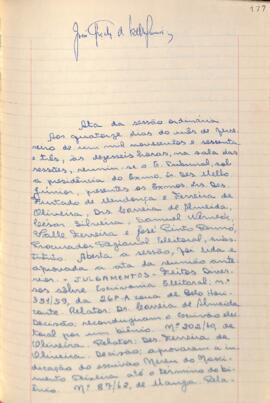 177
Ata da sessão ordinária
Aos quatorze dias do mês de
neiro de um mil novecentos e sessenta
e três, às dezesseis horas, na sala das
sessões, reuniu-se o E. Tribunal, sob
a presidência do Exmo. Sr. Des. Mello
Júnior, presentes os Exmos. Srs. Des.
Furtado de Mendonça e Ferreira de
Oliveira, Drs. Correia de Almeida,
César Silveira, Samuel
Valle Ferreira e José Pinto
Procurador Regional Eleitoral, subs-
tituto. Aberta a sessão, foi lida e
aprovada a ata da reunião ante-
rior. - JULGAMENTOS - Feitos Diver-
sos sôbre Escrivania Eleitoral: n.º
301/59, da 26ª zona de Belo Hori-
zonte. Relator: Dr. Correia de Almeida.
Decisão: reconduziram o escrivão eleito-
ral por um biênio. Nº 302/59, de
Oliveira. Relator: Des. Ferreira de
Oliveira. Decisão: aprovaram a in-
dicação do escrivão Nereu do Nasci-
mento Teixeira até o término do bi-
ênio. Nº 87/62, de Manga. Rela-